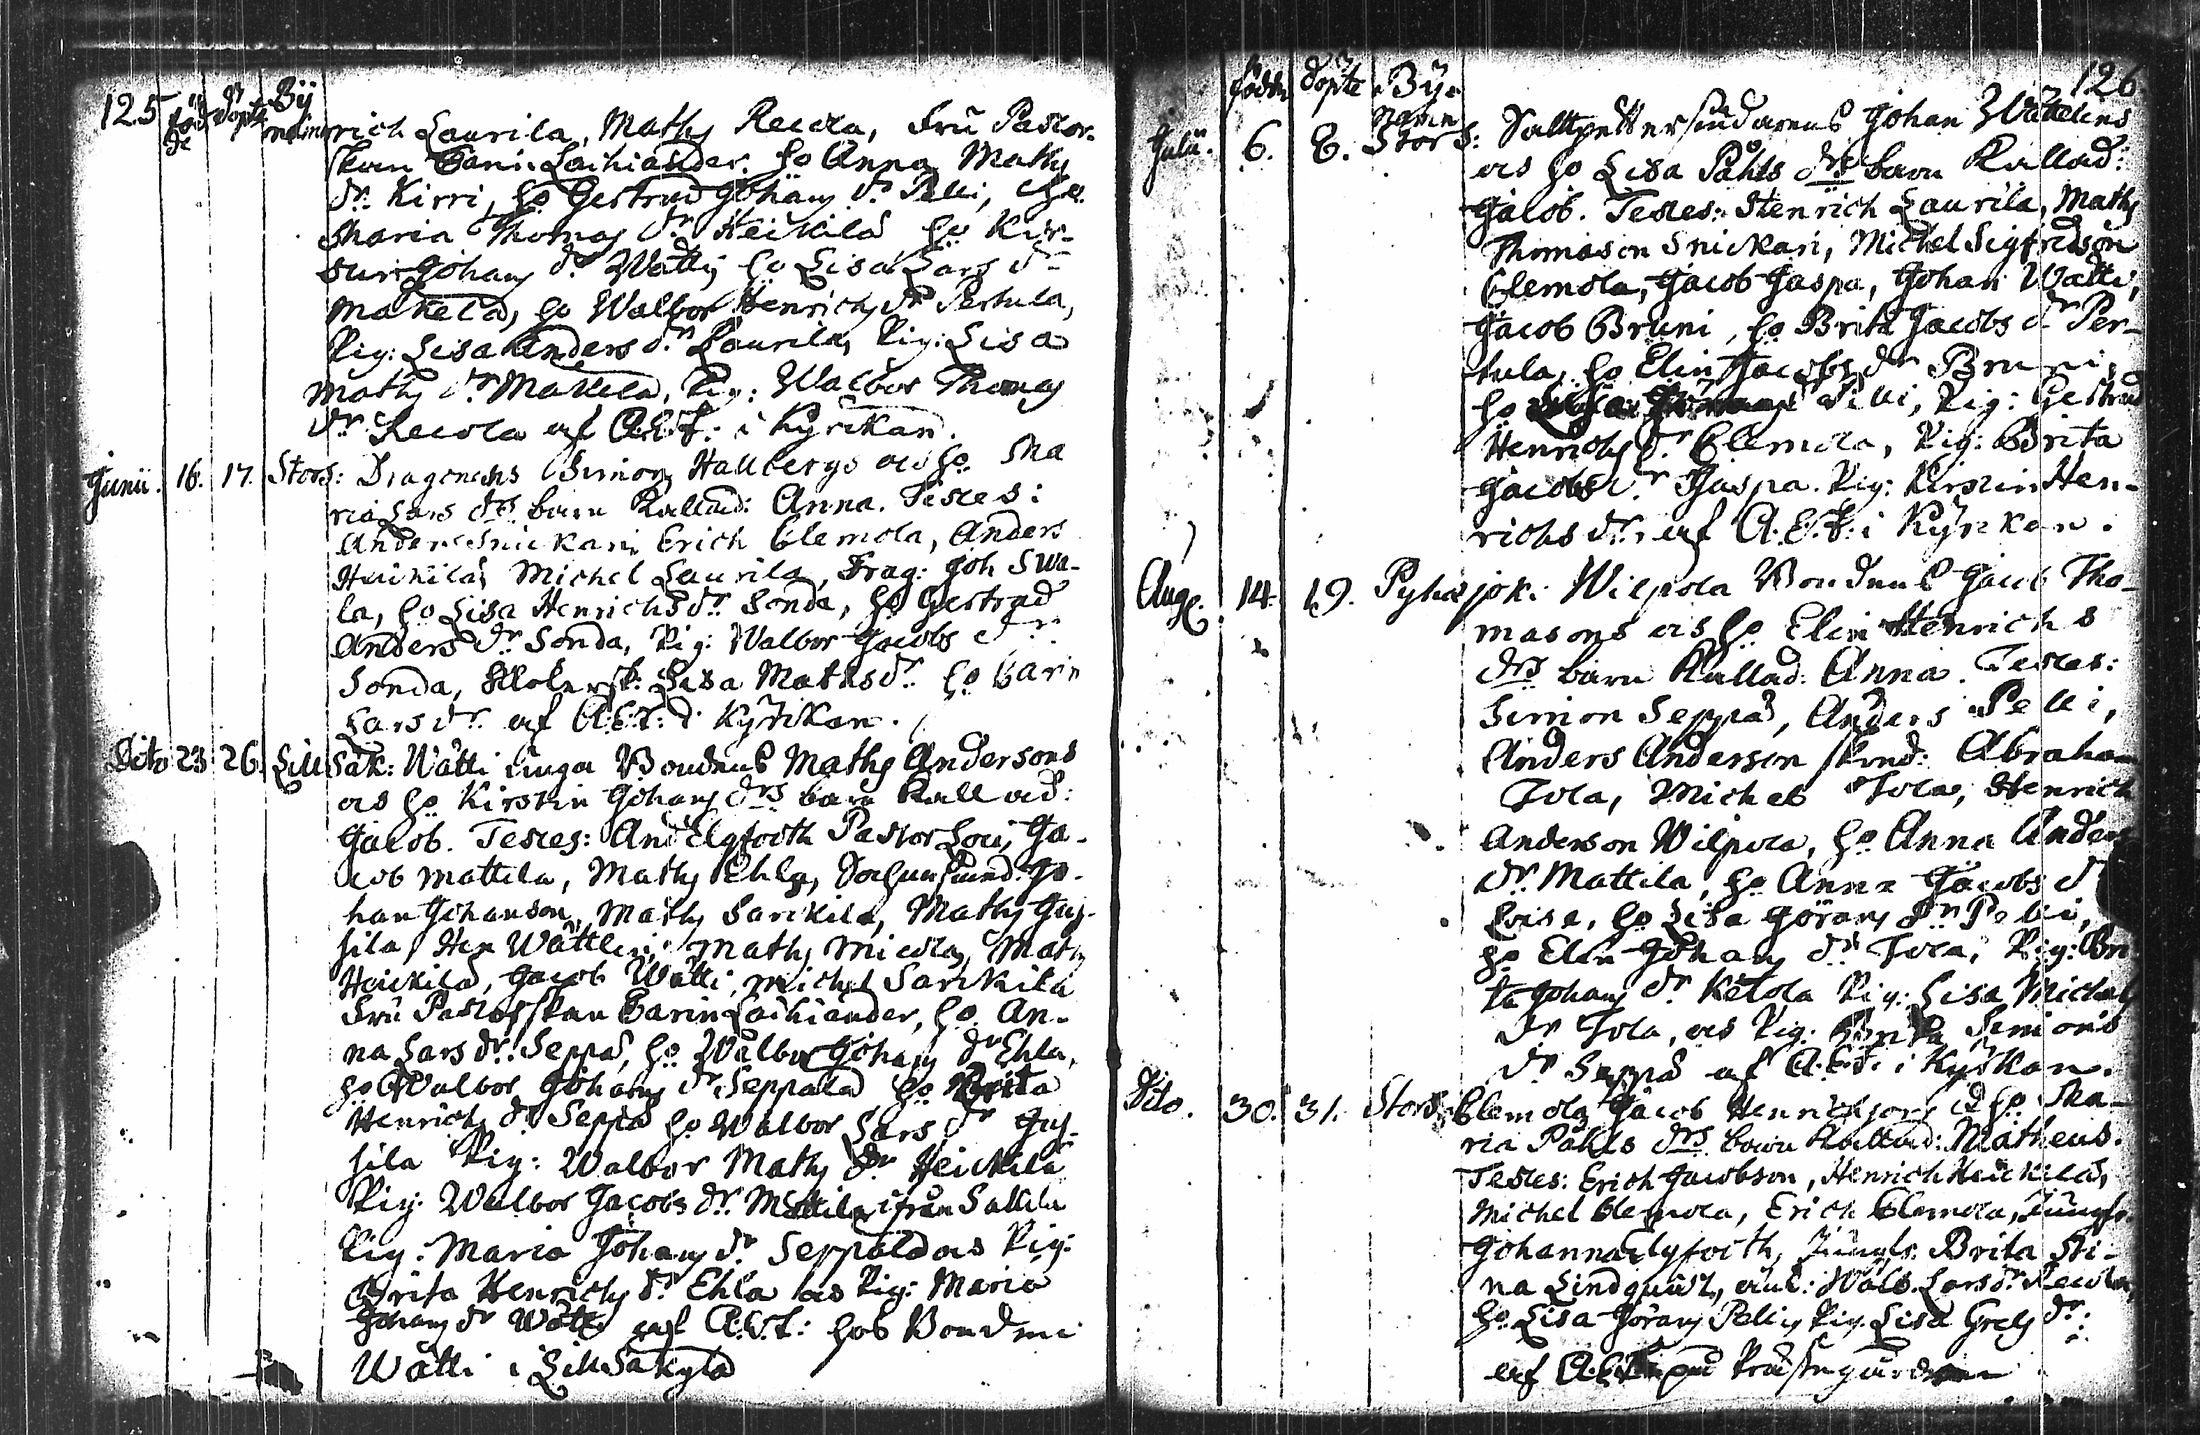 125 föd de döpte By namn
rich Laurila, Mathy Recola, Fru Pastor-
skan Carin Laihiander. ho Anna Mathy
dr. Kirri, ho Gertrud Johans dr Pelli, ho
Maria Thomas dr Heickilä ho Kir-
stin Johans dr Wätti ho Lisa Lars dr
Mäkelä, ho Walbor Henrichs dr Pertula,
Pig: Lisa Anders dr Laurila, Pig: Lisa
Mathy dr Mäkilä, Pig: Walbor Thomas
dr Recola af A.E.P. i Kyrkan.
Junii. 16. 17. Stors: Dragonens Simon Hallbergs och ho Ma
ria Lars drs barn Kallad: Anna. Testes:
Anders Snickari Erich Clemola, Anders
Heickilä, Michel Laurila, Drag: Joh Swa-
la, ho Lisa Henrichs dr Sonda, ho Gertrud
Anders dr Sonda, Pig: Walbor Jacobs dr
Sonda, Lisa Maths dr ho Carin
Lars dr af A.E.P. i Kyrkan.
Dito 23 26. Lill Säk: Wätti unga Bondens Mathy Andersons
och ho Kirstin Johans drs barn Kallad:
Jacob. Testes: And Elgfooth Pastor Loci, Ja-
cob Mattila, Mathy Ehla, Jo-
han Johanson, Mathy Särkilä, Mathy Juj-
jila, Hen Wättlin, Mathy Micola, Mathy
Heickilä, Jacob Wätti, Michel Särckilä
Fru Pastorskan Carin Laihiander, ho An-
na Lars dr. Seppä, ho Walbor Johans dr Ehla,
ho Walbor Johans dr Seppälä ho Brita
Henrichs dr Seppä ho Walbor Lars dr Juj-
jila Pig: Walbor Mathy dr Heickilä
Pig: Walbor Jacobs dr. Mattila ifrån Sallila
Pig: Maria Johans dr Seppälä och Pig:
Brita Henrichs dr Ehla och Pig: Maria
Johans dr Wätti af A.E.P.: hos Bonden
Wätti i Lill Säkylä
födde döpte By namn 126
Julii. 6. 8. Stors: Salltpettersiudarens Johan Wättlins
och ho Lisa Påhls drs barn Kallad:
Jacob. Testes: Henrich Laurila, Mathy
Thomason Snickari, Michel Sigfridson
Clemola, Jacob Jaspa, Johan Wätti,
Jacob Bruni, ho Brita Jacobs dr Per-
tula, ho Elin Jacobs dr Bruni,
ho Pelli, Pig: Gertrud
Henrichs dr Clemola, Pig: Brita
Jacobs dr Jaspa. Pig: Kirstin Hen-
richs dr. af A.E.P. i Kyrkan.
Aug. 14. 19. Pyhäjok: Wilpola Bondens Jacob Tho-
masons och ho Elin Henrichs
drs barn Kallad: Anna. Testes:
Simon Seppä, Anders Pelli,
Anders Anderson Abraham
Tola, Michel Tola, Henrich
Anderson Wilpola, ho Anna Anders
dr. Mattila, ho Anna Jacobs dr
ho Lisa Görans dr Pelli,
ho Elin Johans dr Tola, Pig: Bri
ta Johans dr Ketola Pig: Lisa Michels
dr Tola, och Pig: Simons
dr Seppä af A.E.P. i Kyrkan.
Dito. 30. 31. Stors: Clemola Jacob Henrichsons och ho Ma-
ria Påhls drs barn Kallad: Matheus.
Testes: Erich Jacobson, Henrich Heickilä,
Michel Clemola, Erich Clemola, Jungfr.
Johanna Elgfooth, Jungfr. Brita Sti-
na Lindquist, Walb. Lars dr Recola,
ho Lisa Görans Pelli, Pig. Lisa Grels dr:
af A.E.P. på Prästegården